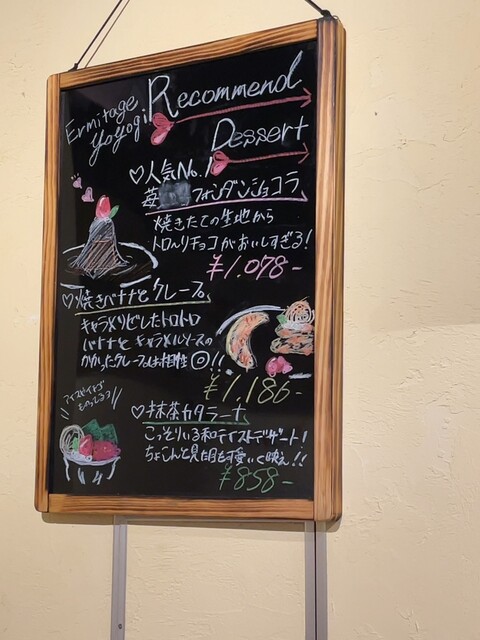 Ermitage
YoYogi
Recommend
Dessert
♡人気No.1
苺 フォンダンショコラ
焼きたての生地から
トロ〜リチョコがおいしすぎる!
¥1.078-
♡焼きバナナとクレープ
キャラメリゼしたトロトロ
バナナとキャラメルソースの
かかったクレープは相性◎!!
¥1,186-
♡抹茶カタラーナ
こっそりいる和テイストデザート!
ちょこんと見た目も可愛く映え!!
¥858-